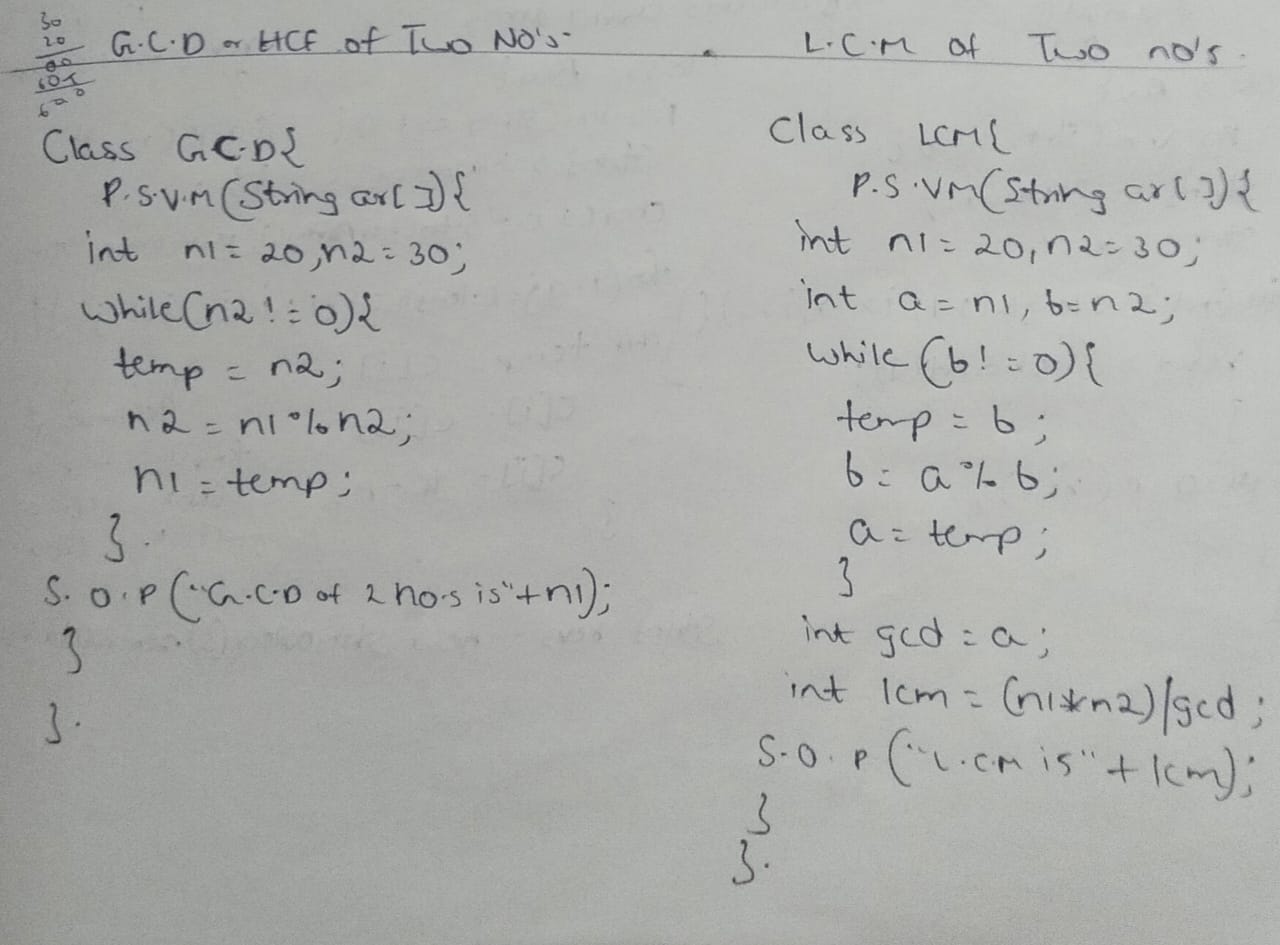 30
20
00
60x
600
G.C.D or HCF of Two NO's-
Class GCD{
P.S.V.M(String ar[]){
int n1 = 20,n2 = 30;
while(n2 != 0){
temp = n2;
n2 = n1 % n2;
n1 = temp;
}.
S.O.P("G.C.D of 2 no.s is"+n1);
}
}.
L.C.M of Two no's.
Class LCM{
P.S.VM(String ar[]){
int n1 = 20, n2 = 30;
int a = n1, b = n2;
while (b! = 0){
temp = b;
b = a % b;
a = temp;
}
int gcd = a;
int lcm = (n1*n2)/gcd;
S.O.P("L.CM is" + lcm);
}
}.